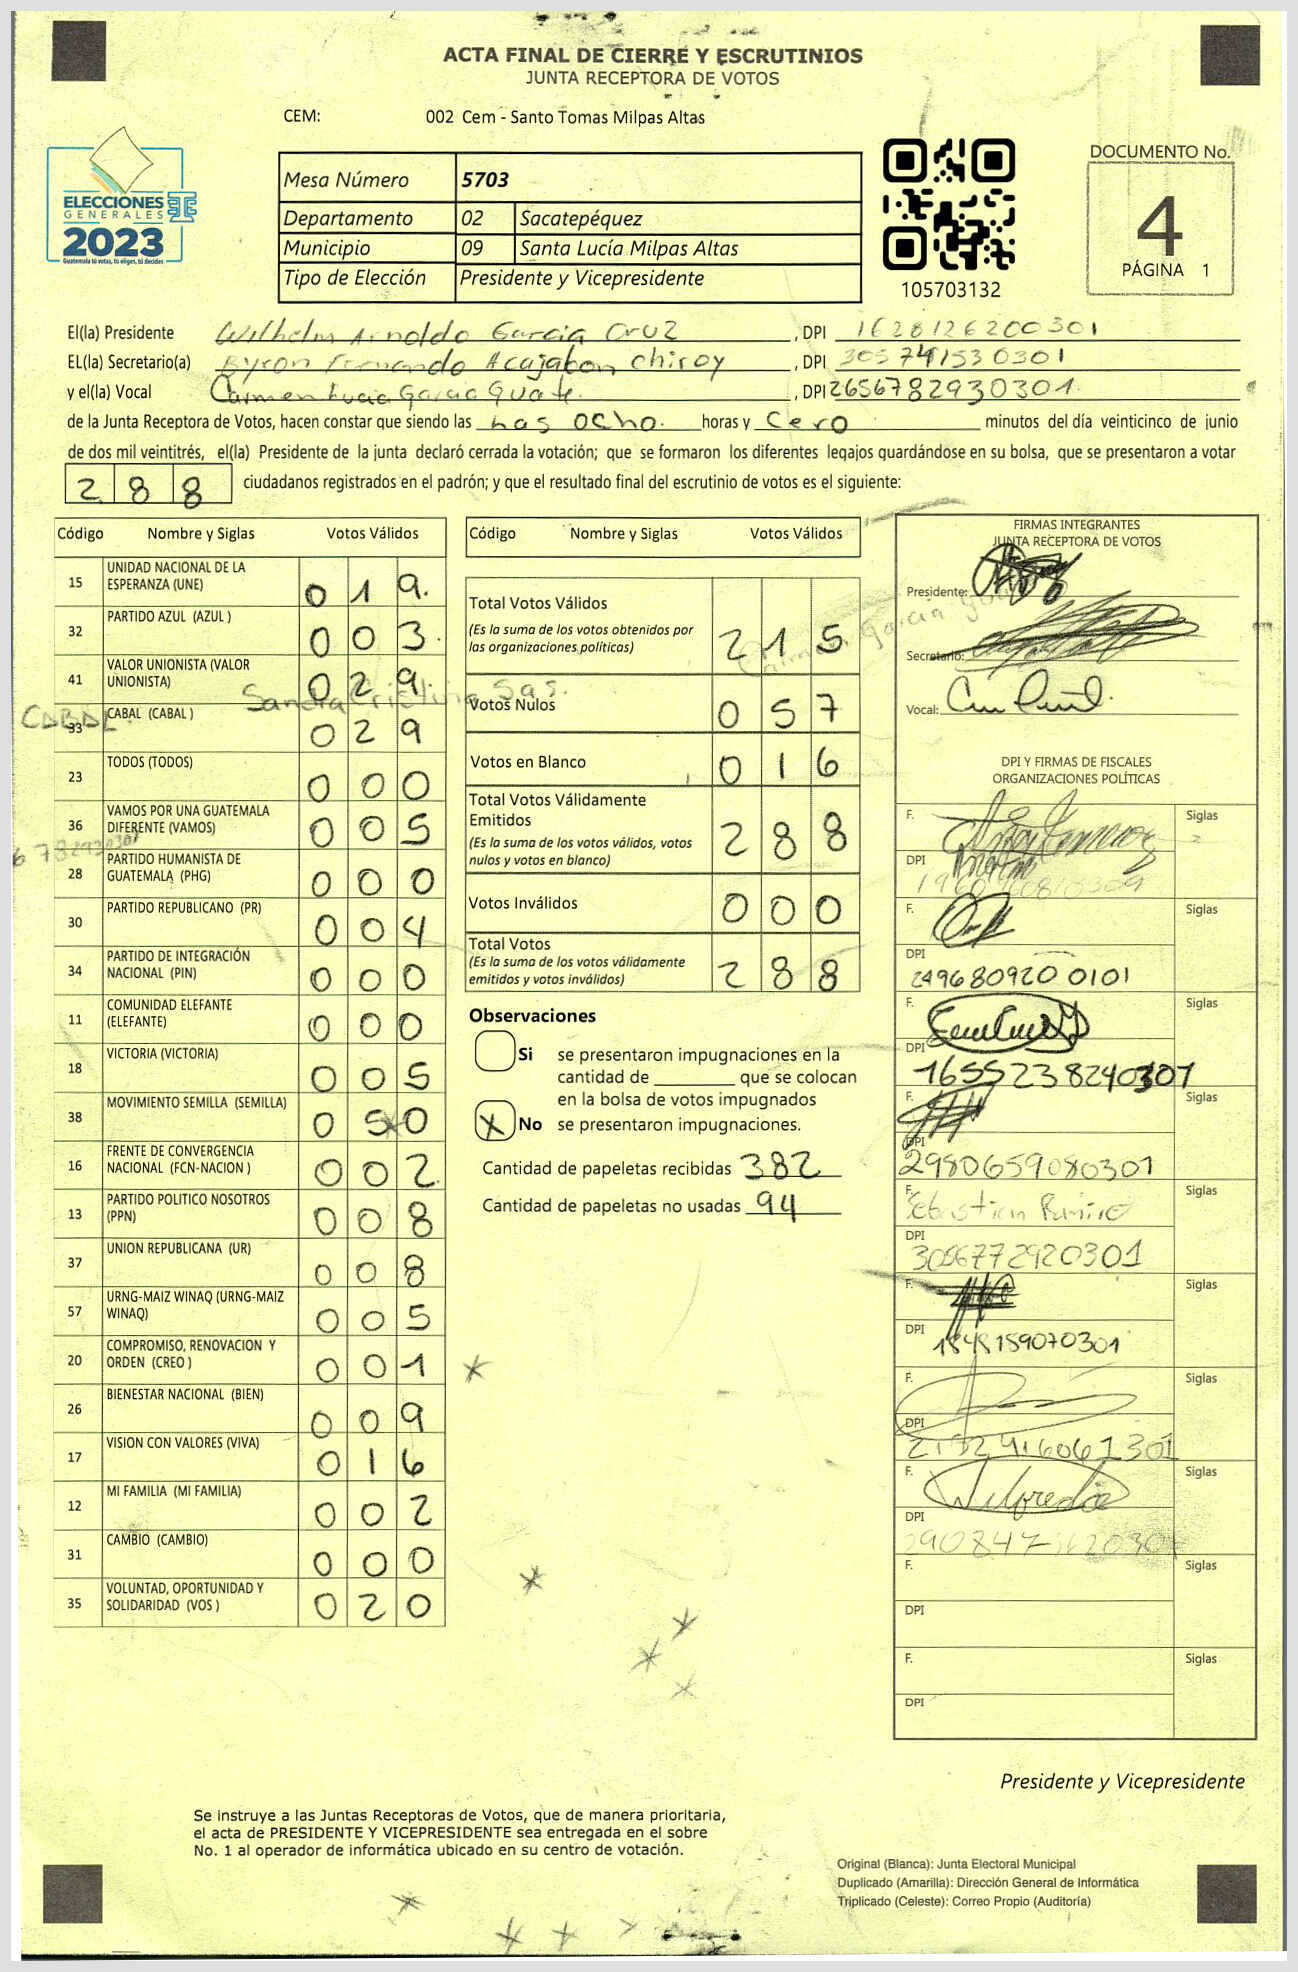 ACTA FINAL DE CIERRE Y ESCRUTINIOS
JUNTA RECEPTORA DE VOTOS
CEM: 002 Cem - Santo Tomas Milpas Altas
ELECCIONES
GENERALES
2023
Guatemala tú votas, tú eliges, tú decides
Mesa Número 5703
Departamento 02 Sacatepéquez
Municipio 09 Santa Lucía Milpas Altas
Tipo de Elección Presidente y Vicepresidente
105703132
DOCUMENTO No.
4
PÁGINA 1
El(la) Presidente Wilhelm Arnoldo Garcia Cruz , DPI 1628126200301
EL(la) Secretario(a) Byron Fernando Acajabon Chiroy , DPI
y el(la) Vocal Carmen Lucia Garcia Guate. , DPI 2656782930301
de la Junta Receptora de Votos, hacen constar que siendo las Las ocho. horas y Cero minutos del día veinticinco de junio
de dos mil veintitrés, el(la) Presidente de la junta declaró cerrada la votación; que se formaron los diferentes legajos quardándose en su bolsa, que se presentaron a votar
2 8 8 ciudadanos registrados en el padrón; y que el resultado final del escrutinio de votos es el siguiente:
Código Nombre y Siglas Votos Válidos
15 UNIDAD NACIONAL DE LA
ESPERANZA (UNE) 0 1 9.
32 PARTIDO AZUL (AZUL ) 0 0 3.
41 VALOR UNIONISTA (VALOR
UNIONISTA) 0 2 9.
Sandra Cristina Sas.
CABAL
33 CABAL (CABAL ) 0 2 9
23 TODOS (TODOS) 0 0 0
36 VAMOS POR UNA GUATEMALA
DIFERENTE (VAMOS) 0 0 5
28 PARTIDO HUMANISTA DE
GUATEMALA (PHG) 0 0 0
30 PARTIDO REPUBLICANO (PR) 0 0 4
34 PARTIDO DE INTEGRACIÓN
NACIONAL (PIN) 0 0 0
11 COMUNIDAD ELEFANTE
(ELEFANTE) 0 0 0
18 VICTORIA (VICTORIA) 0 0 5
38 MOVIMIENTO SEMILLA (SEMILLA) 0 5 0
16 FRENTE DE CONVERGENCIA
NACIONAL (FCN-NACION ) 0 0 2
13 PARTIDO POLITICO NOSOTROS
(PPN) 0 0 8
37 UNION REPUBLICANA (UR) 0 0 8
57 URNG-MAIZ WINAQ (URNG-MAIZ
WINAQ) 0 0 5
20 COMPROMISO, RENOVACION Y
ORDEN (CREO ) 0 0 1
26 BIENESTAR NACIONAL (BIEN) 0 0 9
17 VISION CON VALORES (VIVA) 0 1 6
12 MI FAMILIA (MI FAMILIA) 0 0 2
31 CAMBIO (CAMBIO) 0 0 0
35 VOLUNTAD, OPORTUNIDAD Y
SOLIDARIDAD (VOS ) 0 2 0
Código Nombre y Siglas Votos Válidos
Total Votos Válidos
(Es la suma de los votos obtenidos por
las organizaciones políticas) 2 1 5
Votos Nulos 0 5 7
Votos en Blanco 0 1 6
Total Votos Válidamente
Emitidos
(Es la suma de los votos válidos, votos
nulos y votos en blanco) 2 8 8
Votos Inválidos 0 0 0
Total Votos
(Es la suma de los votos válidamente
emitidos y votos inválidos) 2 8 8
Observaciones
Si se presentaron impugnaciones en la
cantidad de ________ que se colocan
en la bolsa de votos impugnados
X No se presentaron impugnaciones.
Cantidad de papeletas recibidas 382
Cantidad de papeletas no usadas 94
FIRMAS INTEGRANTES
JUNTA RECEPTORA DE VOTOS
Presidente:
Secretario:
Vocal:
DPI Y FIRMAS DE FISCALES
ORGANIZACIONES POLÍTICAS
F. Siglas
DPI
F. Siglas
DPI 249680920 0101
F. Siglas
DPI 1655238240301
F. Siglas
DPI 2980659080301
F. Sebastian Ramirez Siglas
DPI 3056772920301
F. Siglas
DPI 1848159070301
F. Siglas
DPI
F. Wilfredo Siglas
DPI
F. Siglas
DPI
F. Siglas
DPI
Presidente y Vicepresidente
Se instruye a las Juntas Receptoras de Votos, que de manera prioritaria,
el acta de PRESIDENTE Y VICEPRESIDENTE sea entregada en el sobre
No. 1 al operador de informática ubicado en su centro de votación.
Original (Blanca): Junta Electoral Municipal
Duplicado (Amarilla): Dirección General de Informática
Triplicado (Celeste): Correo Propio (Auditoría)